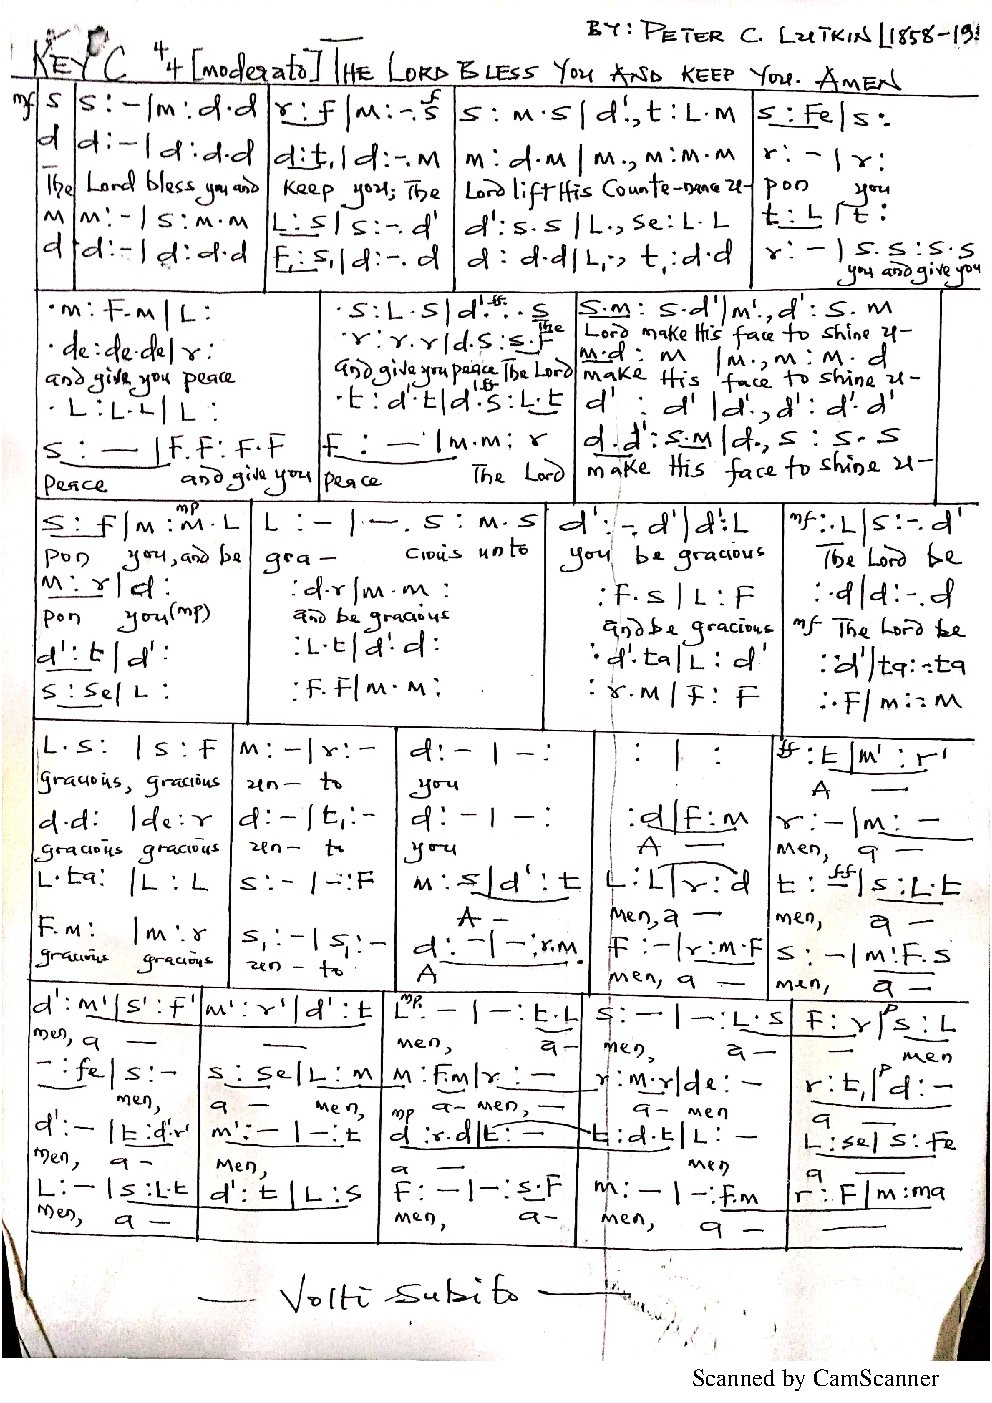 BY: PETER C. LUTKIN [1858-19
KEY C 4/4 [moderato] THE LORD BLESS YOU AND KEEP YOU. AMEN
mf s | s : – | m : d . d | r : f | m : – . s f | s : m . s | d' ., t : L . m | s : Fe | s :
d | d : – | d : d . d | d : t, | d : – . m | m : d . m | m ., m : m . m | r : – | r :
The | Lord bless you and | keep you; The | Lord lift His Counte-nance u- | pon you
m | m : – | s : m . m | L : s | s : – . d' | d' : s . s | L ., se : L . L | t : L | t :
d | d : – | d : d . d | F, : s, | d : – . d | d : d . d | L, ., t, : d . d | r : – | s . s : s . s
you and give you
. m : F . m | L : | . s : L . s | d' ff . . s | s . m : s . d' | m' ., d' : s . m
The | Lord make His face to shine u-
. de : de . de | r : | . r : r . r | d . s : s . F | m . d : m | m ., m : m . d
and give you peace | and give you peace The Lord | make His face to shine u-
. L : L . L | L : | . t : d' . t | d' . s ff : L . t | d' : d' | d' ., d' : d' . d'
s : – | F . F : F . F | f : – | m . m : r | d . d' : s . m | d ., s : s . s
Peace and give you | Peace The Lord | make His face to shine u-
s : f | m : m . L mp | L : – | – . s : m . s | d' : – . d' | d' : L | mf : . L | s : – . d'
pon you, and be | gra – cious unto | you be gracious | The Lord be
m : r | d : | : d . r | m . m : | : F . s | L : F | : . d | d : – . d
pon you (mp) | and be gracious | and be gracious | mf The Lord be
d' : t | d' : | : L . t | d' . d : | : d' . ta | L : d' | : . d' | ta : – . ta
s : se | L : | : F . F | m . m : | : r . m | F : F | : . F | m : – . m
L . s : | s : F | m : – | r : – | d : – | – : | : | : | ff : t | m' : r'
gracious, gracious | un – to | you | A –
d . d : | de : r | d : – | t, : – | d : – | – : | : d | F : m | r : – | m : –
gracious gracious | un – to | you | A – | men, a –
L . ta : | L : L | s : – | – : F | m : s | d' : t | L : L | r : d | t : – ff | s : L . t
A – | men, a – | men, a –
F . m : | m : r | s, : – | s, : – | d : – | – : r . m | F : – | r : m . F | s : – | m : F . s
gracious gracious | un – to | A | men, a – | men, a –
d' : m' | s' : f' | m' : r' | d' : t | mp L : – | – : t . L | s : – | – : L . s | F : r | s p : L
men, a – | – | men, a – | men, a – | – men
– : fe | s : – | s : se | L : m | m : F . m | r : – | r : m . r | de : – | r : t, | d p : –
men, | a – men, | a – men, – | a – men | a –
d' : – | t : d' . r' | m' : – | – : t | mp d : r . d | t : – | t : d . t | L : – | L : se | s : Fe
men, a – | men, | a – | men | a –
L : – | s : L . t | d' : t | L : s | F : – | – : s . F | m : – | – : F . m | r : F | m : ma
men, a – | men, a – | men, a – | –
– Volti Subito –
Scanned by CamScanner